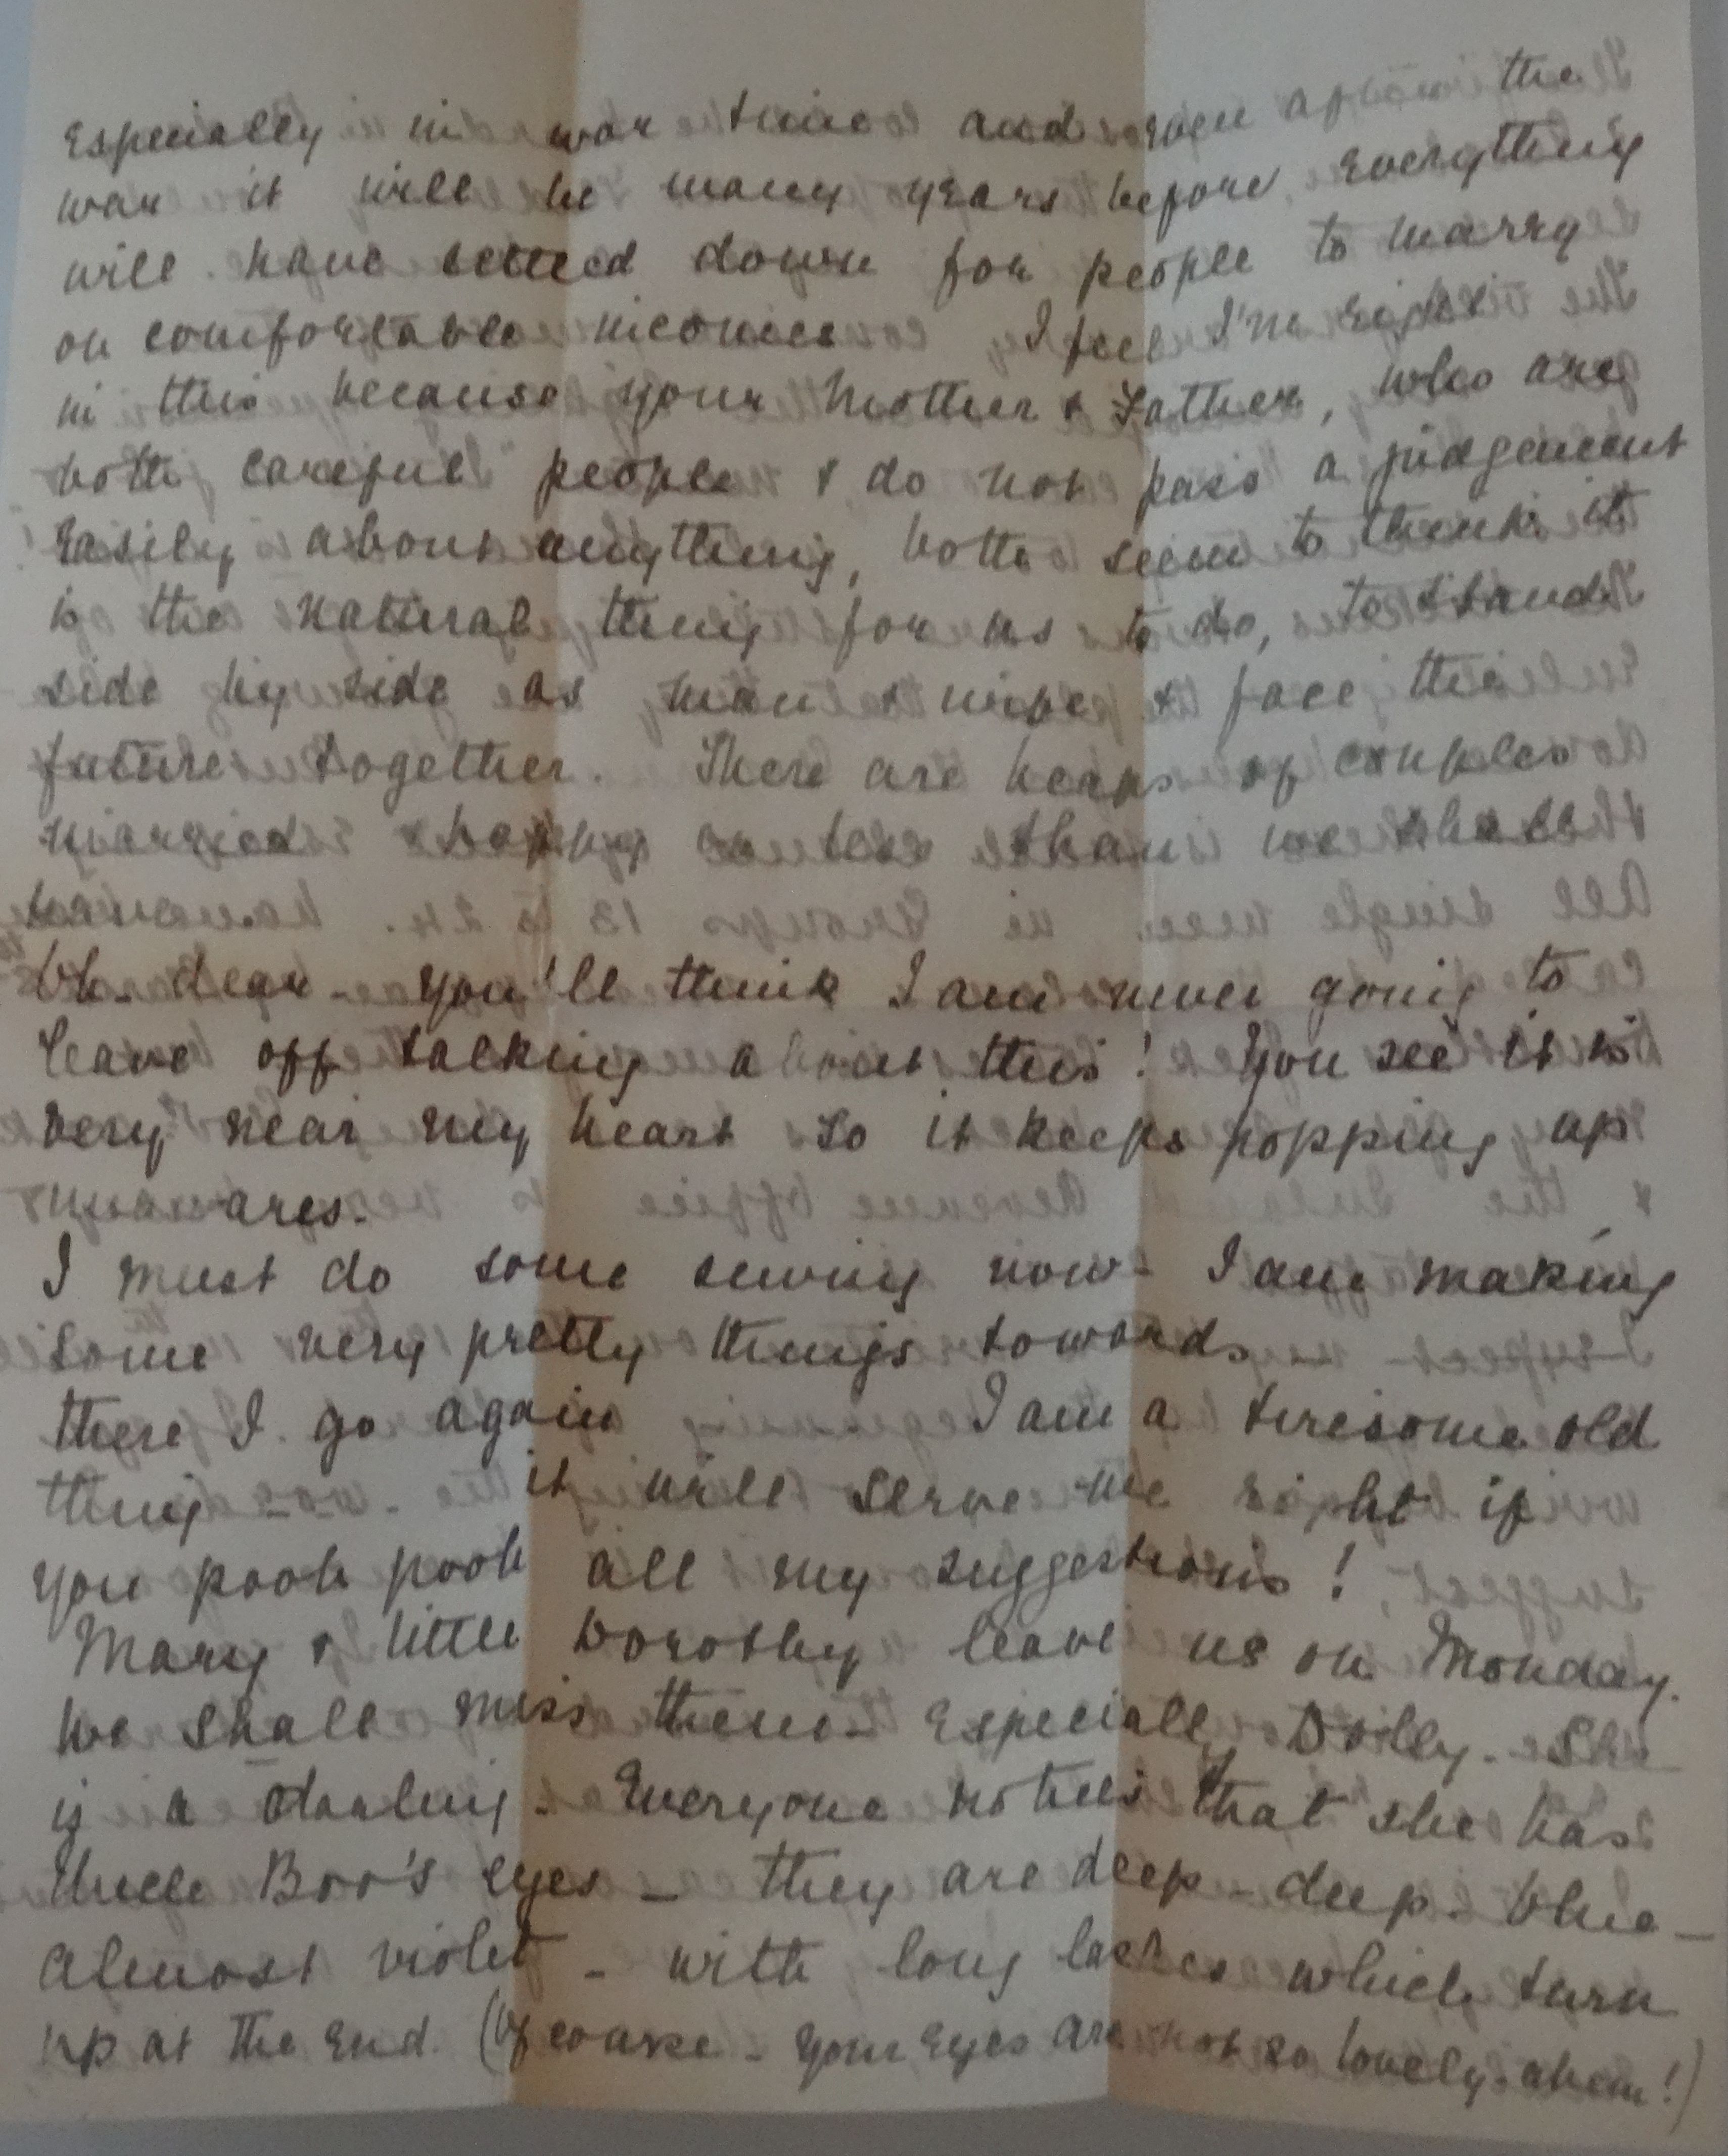 Especially in war time and even after the
war it will be many years before everything
will have settled down for people to marry
on comfortable incomes I feel I'm right
in this because your Mother & Father, who are
both careful people & do not pass a judgement
Easily about anything, both seem to think it
is the natural thing for us to do, to stand
side by side as man & wife & face the
future together. There are heaps of couples
married & happy on less than we shall
have.
Oh dear - you'll think I am never going to
leave off talking about this! You see it is
very near my heart so it keeps popping up
unawares.
I must do some sewing now - I am making
some very pretty things towards —
there I go again I am a tiresome old
thing - - it will serve me right if
you pooh pooh all my suggestions!
Mary & little Dorothy leave us on Monday.
We shall miss them - Especially Dolly - She
is a darling - Everyone notices that she has
Uncle Boo's eyes — they are deep - deep - blue —
almost violet - with long lashes which turn
up at the end. (Of course - your eyes are not so lovely - ahem!)